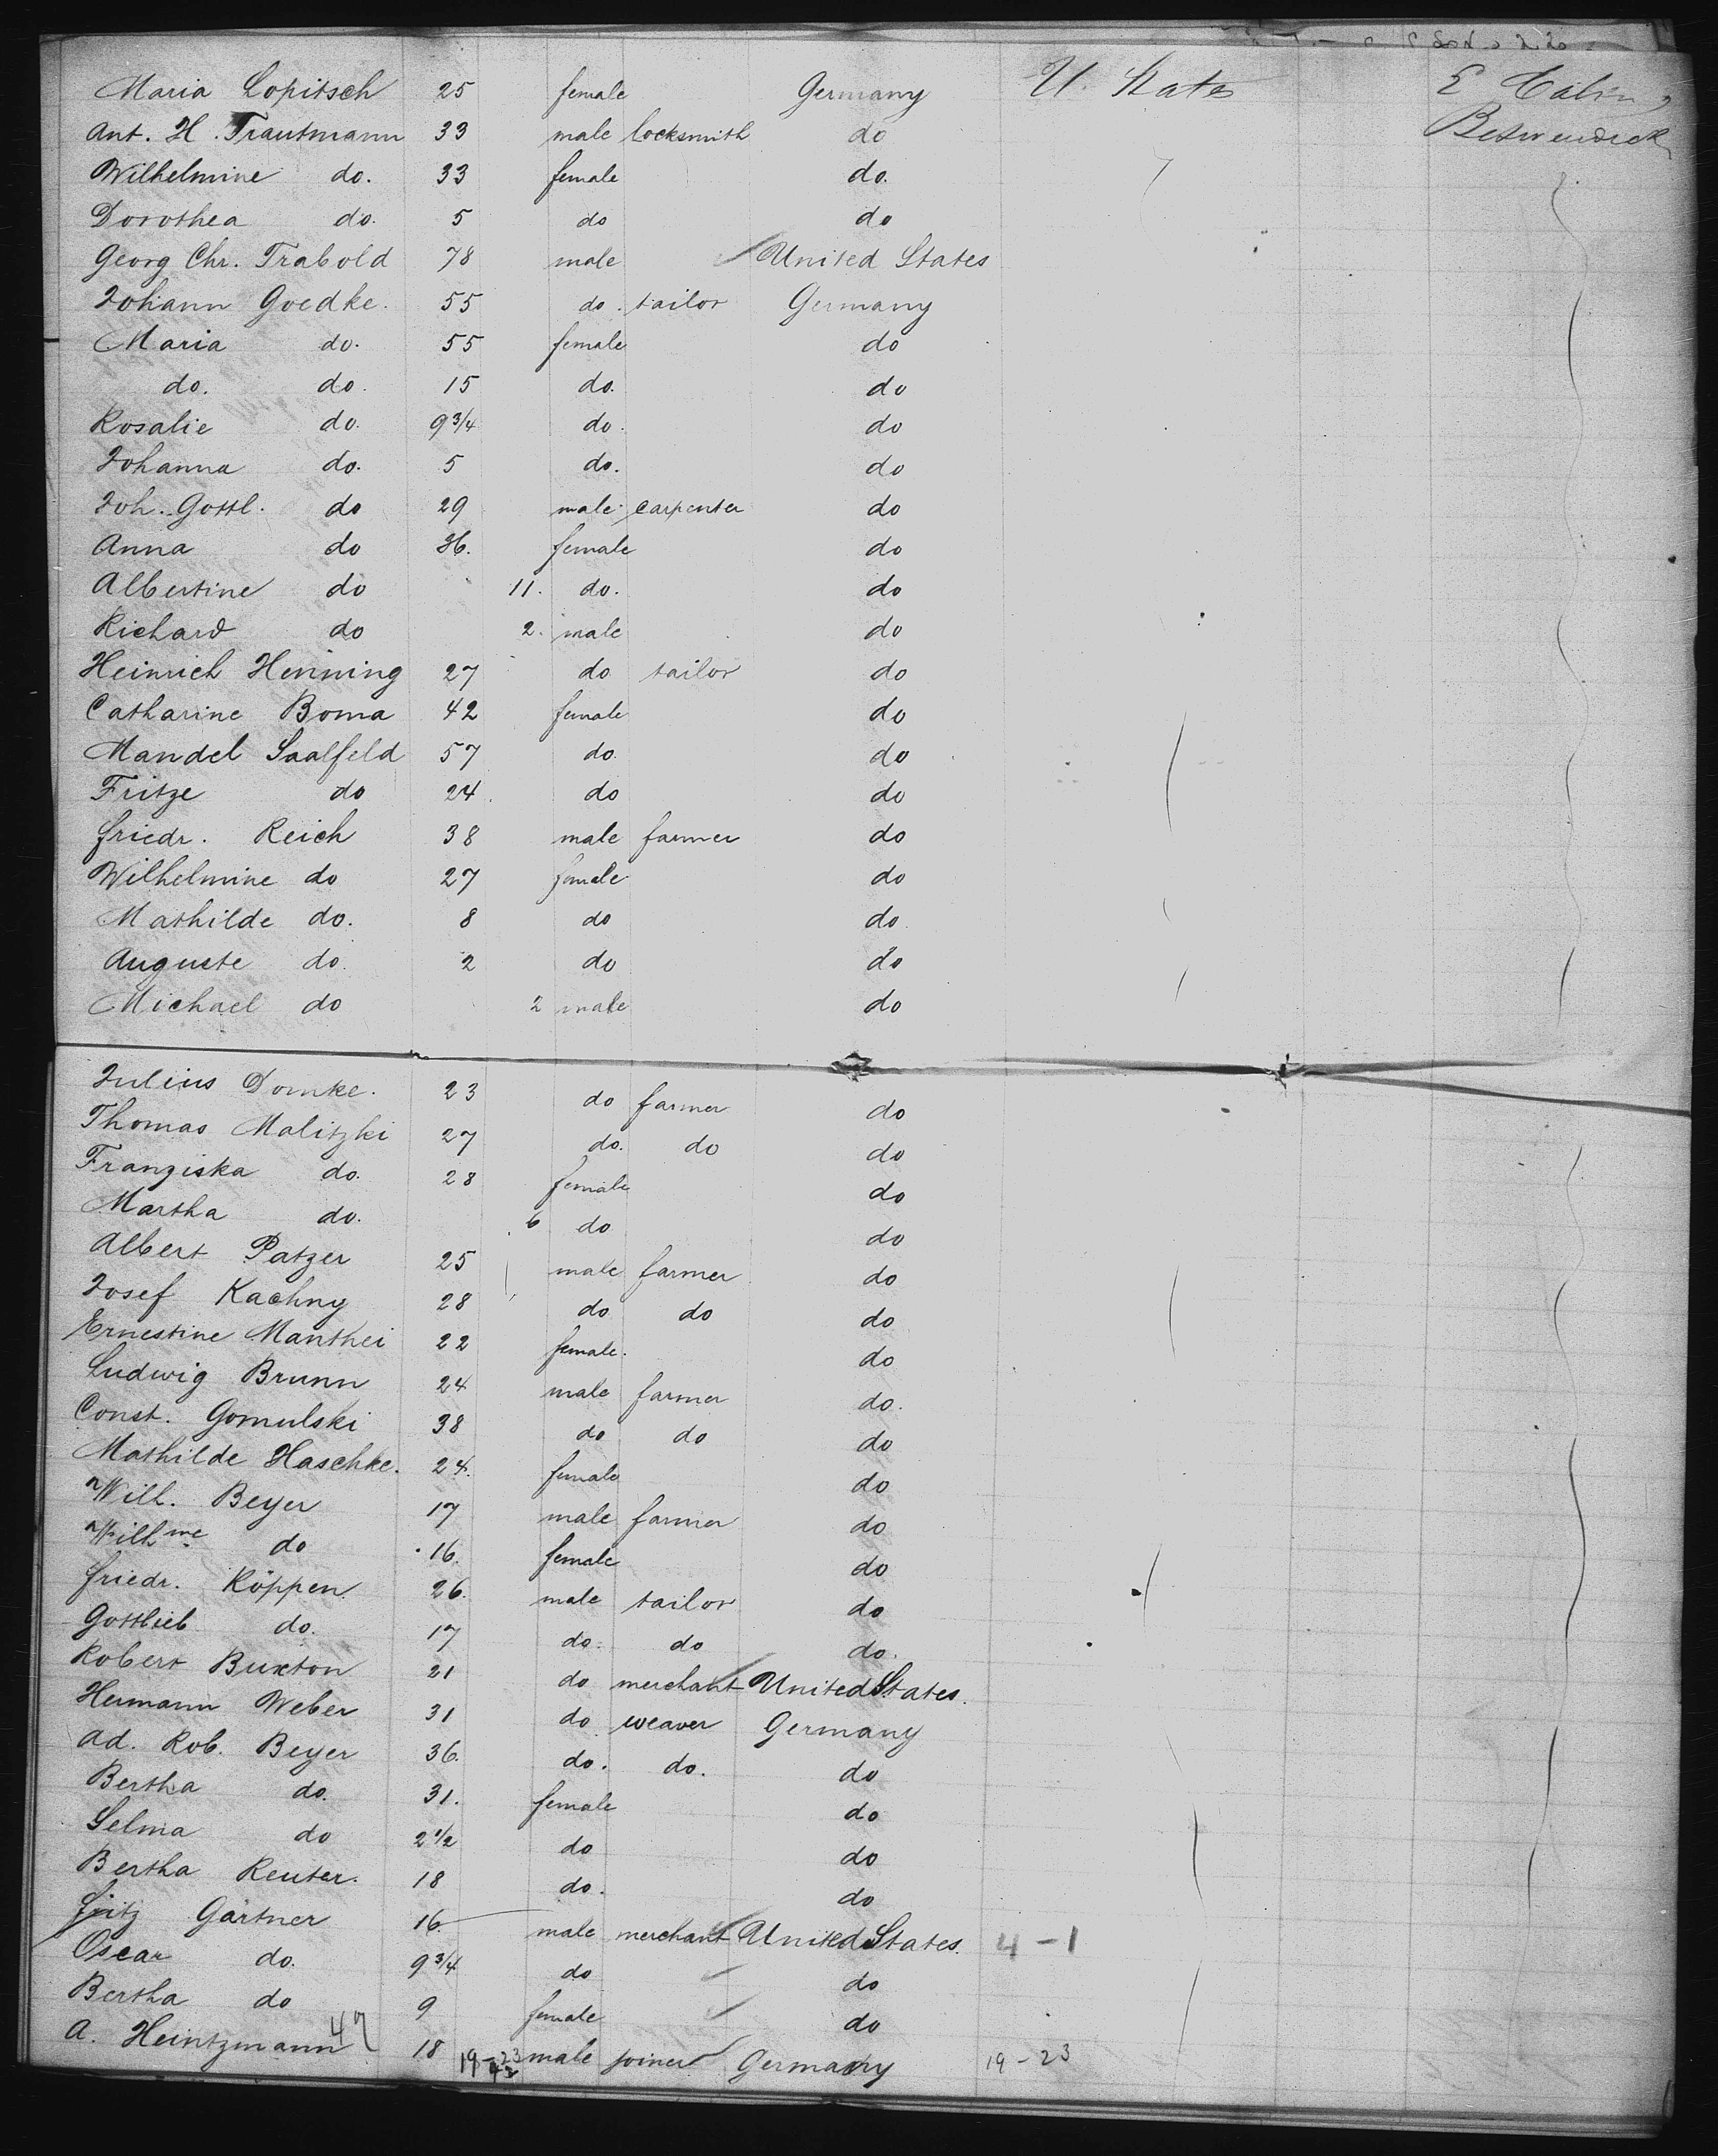 Maria Lopitsch 25 female Germany U. States E Cabin,
Ant. H. Trautmann 33 male locksmith do Betwendeck
Wilhelmine do. 33 female do.
Dorothea do. 5 do do
Georg Chr. Trabold 78 male United States
Johann Goedke. 55 do. tailor Germany
Maria do. 55 female do
do. do. 15 do. do
Rosalie do. 9 3/4 do. do
Johanna do. 5 do. do
Joh. Gottl. do 29 male carpenter do
Anna do 36. female do
Albertine do 11. do. do
Richard do 2. male do
Heinrich Henning 27 do tailor do
Catharine Boma 42 female do
Mandel Saalfeld 57 do. do
Fritze do 24. do do
friedr. Reich 38 male farmer do
Wilhelmine do 27 female do
Mathilde do. 8 do do.
Auguste do. 2 do do
Michael do 2 male do
Julius Domke. 23 do farmer do
Thomas Malitzki 27 do. do do
Franziska do. 28 female do
Martha do. 6 do do
Albert Patzer 25 male farmer do
Josef Kachny 28 do do do
Ernestine Manthei 22 female. do
Ludwig Brunn 24 male farmer do.
Const. Gomulski 38 do do do
Mathilde Haschke. 24. female do
Wilh. Beyer 17 male farmer do
Wilhme do 16. female do
friedr. Köppen 26. male tailor do
Gottlieb do. 17 do. do do.
Robert Buxton 21 do merchant United States.
Hermann Weber 31 do weaver Germany
Ad. Rob. Beyer 36. do. do. do
Bertha do. 31. female do
Selma do 2 1/2 do do
Bertha Reuter. 18 do. do
fritz Gärtner 16. male merchant United States. 4-1
Oscar do. 9 3/4 do do
Bertha do 9 female do
A. Heintzmann 47 18 19-23 male joiner Germany 19-23